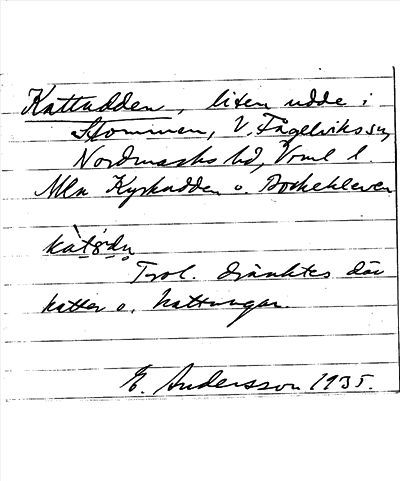 Kattudden, liten udde i
Stommen, V. Fågelviks sn,
Nordmarks hd, Vrml l.
Mln Kyrkudden o. Bockekleven
kàtṣ̌dn̥
Trol. dränktes där
katter o. kattungar.
E. Andersson 1935.